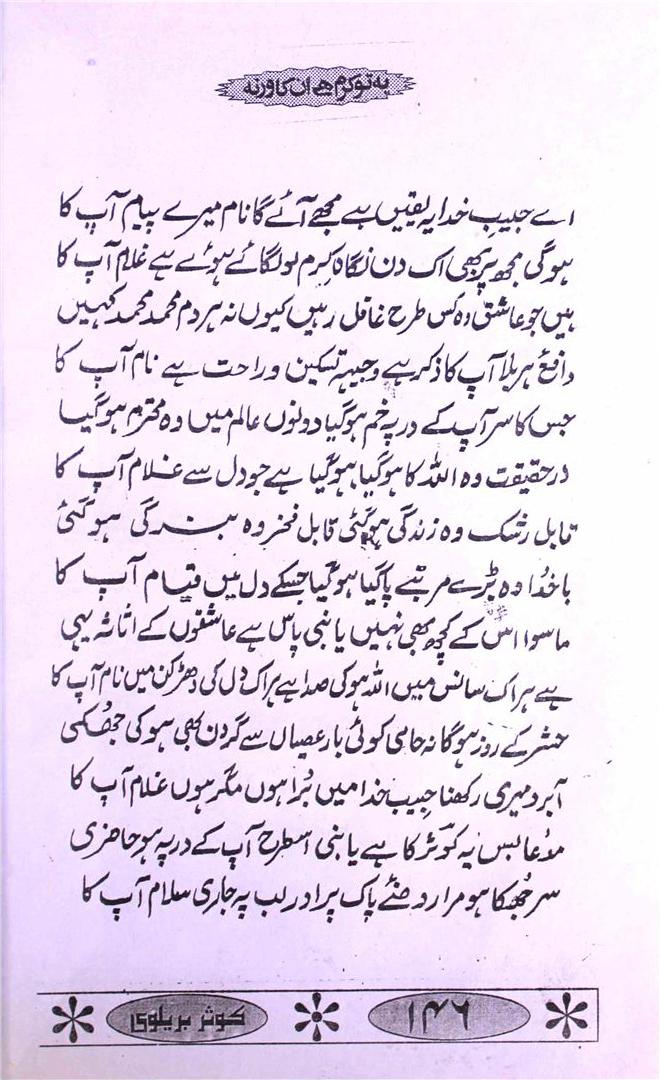 یہ تو کرم ہے ان کا ورنہ
اے حبیب خدا یہ یقیں ہے مجھے آئے گا نام میرے پیام آپ کا
ہوگی مجھ پر بھی اک دن نگاہ کرم لو لگائے ہوئے ہے غلام آپ کا
ہیں جو عاشق وہ کس طرح غافل رہیں کیوں نہ ہر دم محمد محمد کہیں
دافع ہر بلا آپ کا ذکر ہے وجہہ تسکین و راحت ہے نام آپ کا
جس کا سر آپ کے در پہ خم ہو گیا دونوں عالم میں وہ محترم ہو گیا
در حقیقت وہ اللہ کا ہو گیا، ہو گیا ہے جو دل سے غلام آپ کا
قابل رشک وہ زندگی ہو گئی قابل فخر وہ بندگی ہو گئی
باخدا وہ بڑے مرتبے پا گیا ہو گیا جسکے دل میں قیام آپ کا
ماسوا اس کے کچھ بھی نہیں یا نبی پاس ہے عاشقوں کے اثاثہ یہی
ہے ہر اک سانس میں اللہ ہو کی صدا ہے ہر اک دل کی دھڑکن میں نام آپ کا
حشر کے روز ہوگا نہ حامی کوئی بار عصیاں سے گردن بھی ہوگی جھکی
آبرو میری رکھنا حبیب خدا میں بُرا ہوں مگر ہوں غلام آپ کا
مدعا بس یہ کوثر کا ہے یا نبی اسطرح آپ کے در پہ ہو حاضری
سر جھکا ہو مرا روضئے پاک پر اور لب پہ جاری سلام آپ کا
۱۴۶
کوثر بریلوی